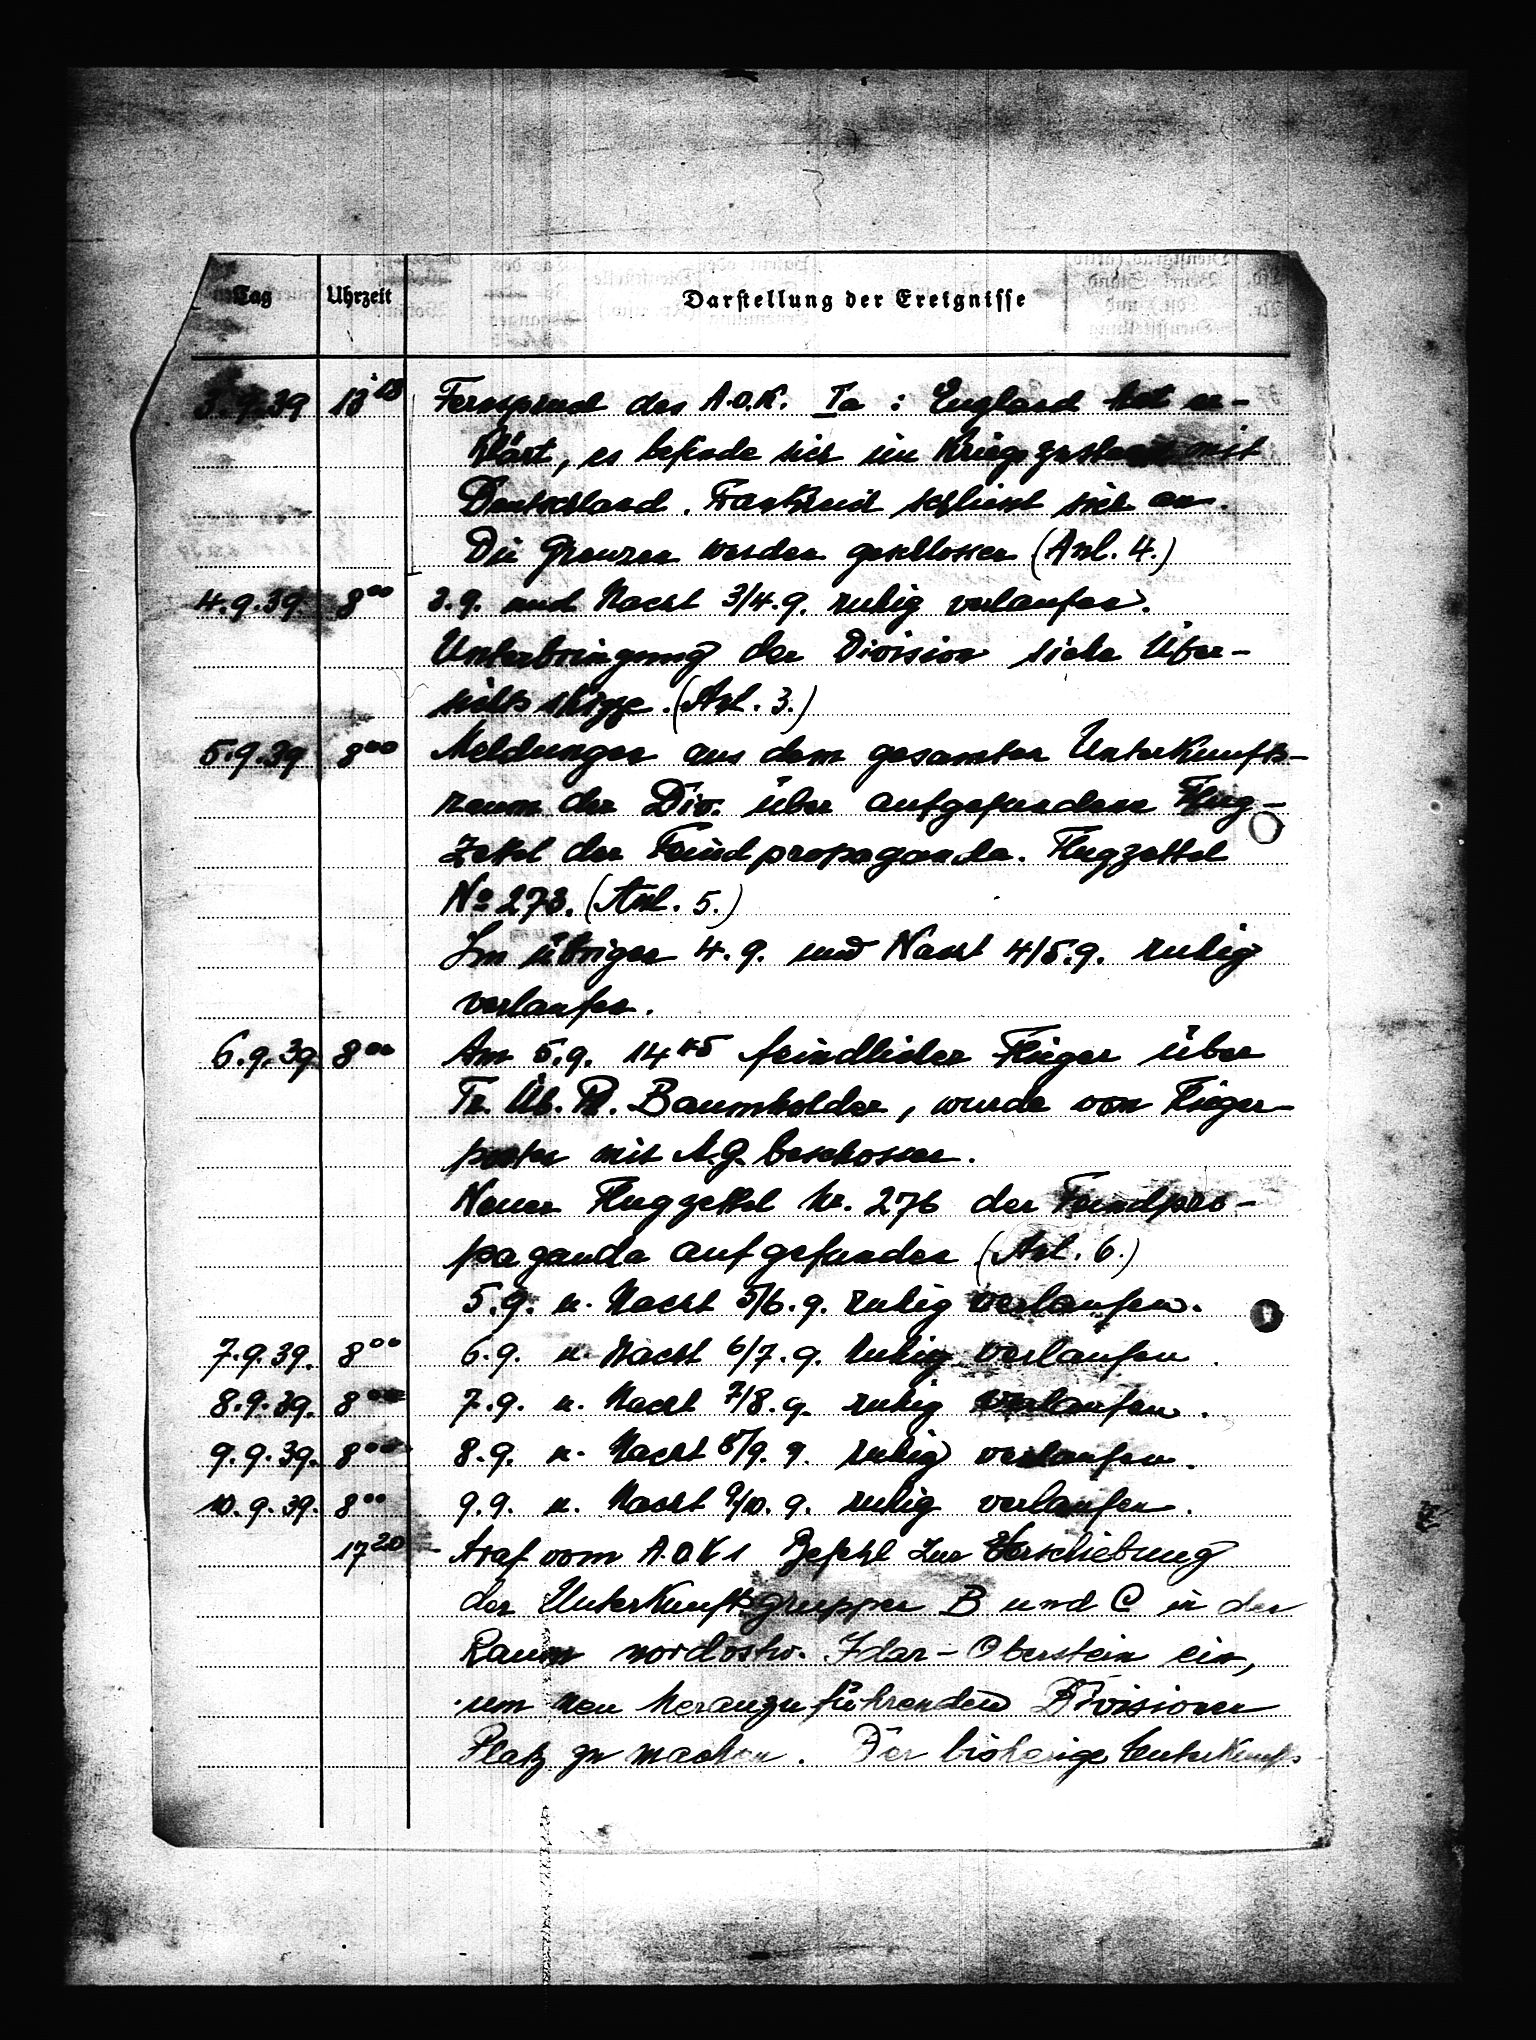 Tag Uhrzeit Darstellung der Ereignisse
3.9.39 13 Fernspruch des A.O.K. Ia : England hat er-
klärt, es befinde sich im Kriegszustand mit
Deutschland. Frankreich schliesst sich an.
Die Grenzen werden geschlossen (Anl. 4.)
4.9.39 8⁰⁰ 3.9. und Nacht 3/4.9. ruhig verlaufen.
Unterbringung der Division siehe Über-
sichtsskizze. (Anl. 3.)
5.9.39 8⁰⁰ Meldungen aus dem gesamten Unterkunfts-
raum der Div. über aufgefundene Flug-
zettel der Feindpropaganda. Flugzettel
No 273. (Anl. 5.)
Im übrigen 4.9. und Nacht 4/5.9. ruhig
verlaufen.
6.9.39. 8⁰⁰ Am 5.9. 14⁴⁵ feindlicher Flieger über
Tr. Üb. Pl. Baumholder, wurde von Flieger-
posten mit M.G. beschossen.
Neuer Flugzettel Nr. 276 der Feindpro-
paganda aufgefunden (Anl. 6.)
5.9. u. Nacht 5/6.9. ruhig verlaufen.
7.9.39. 8⁰⁰ 6.9. u. Nacht 6/7.9. ruhig verlaufen.
8.9.39. 8⁰⁰ 7.9. u. Nacht 7/8.9. ruhig verlaufen.
9.9.39. 8⁰⁰ 8.9. u. Nacht 8/9.9. ruhig verlaufen.
10.9.39. 8⁰⁰ 9.9. u. Nacht 9/10.9. ruhig verlaufen.
17²⁰ Traf vom A.O.K 1 Befehl zur Verschiebung
der Unterkunftsgruppen B und C in den
Raum nordostw. Idar-Oberstein ein,
um neu heranzuführenden Divisionen
Platz zu machen. Der bisherige Unterkunfts-